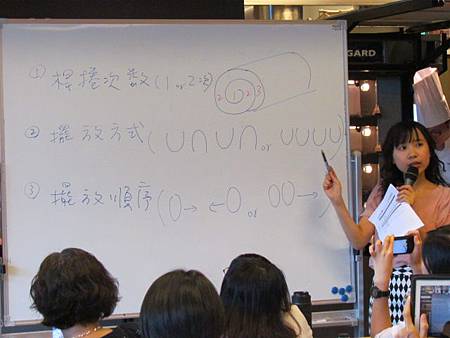 ① 桿捲次數(1 or 2次)
2 1 2 3
② 擺放方式(∪∩∪∩ or ∪∪∪∪)
③ 擺放順序(0→ ←0 or 00→)
GARD